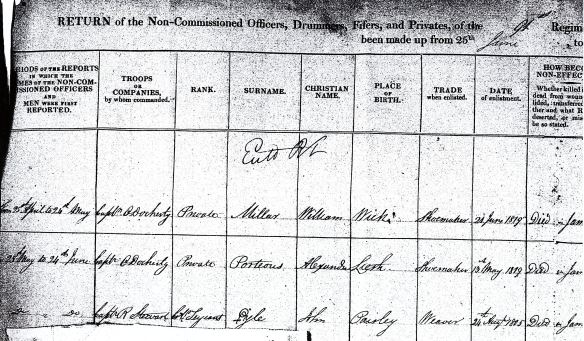 RETURN of the Non-Commissioned Officers, Drummers, Fifers, and Privates, of the 92nd Regim
been made up from 25th June to
RIODS OF THE REPORTS IN WHICH THE MES OF THE NON-COM- SSIONED OFFICERS AND MEN WERE FIRST REPORTED.
TROOPS OR COMPANIES, by whom commanded.
RANK.
SURNAME.
CHRISTIAN NAME.
PLACE OF BIRTH.
TRADE when enlisted.
DATE of enlistment.
HOW BECO NON-EFFE
Whether killed dead from woun lided, transferre ther and what R deserted, or mis be so stated.
April to 24th May Captn. O'Docherty Private Millar William Wick Shoemaker June Died Jam
25th May to 24th June Captn. O'Docherty Private Porteous Alexander Leith Shoemaker May Died Jam
do Captn. R Stewart Serjeant Pyle John Paisley Weaver 24th Augt Died Jam